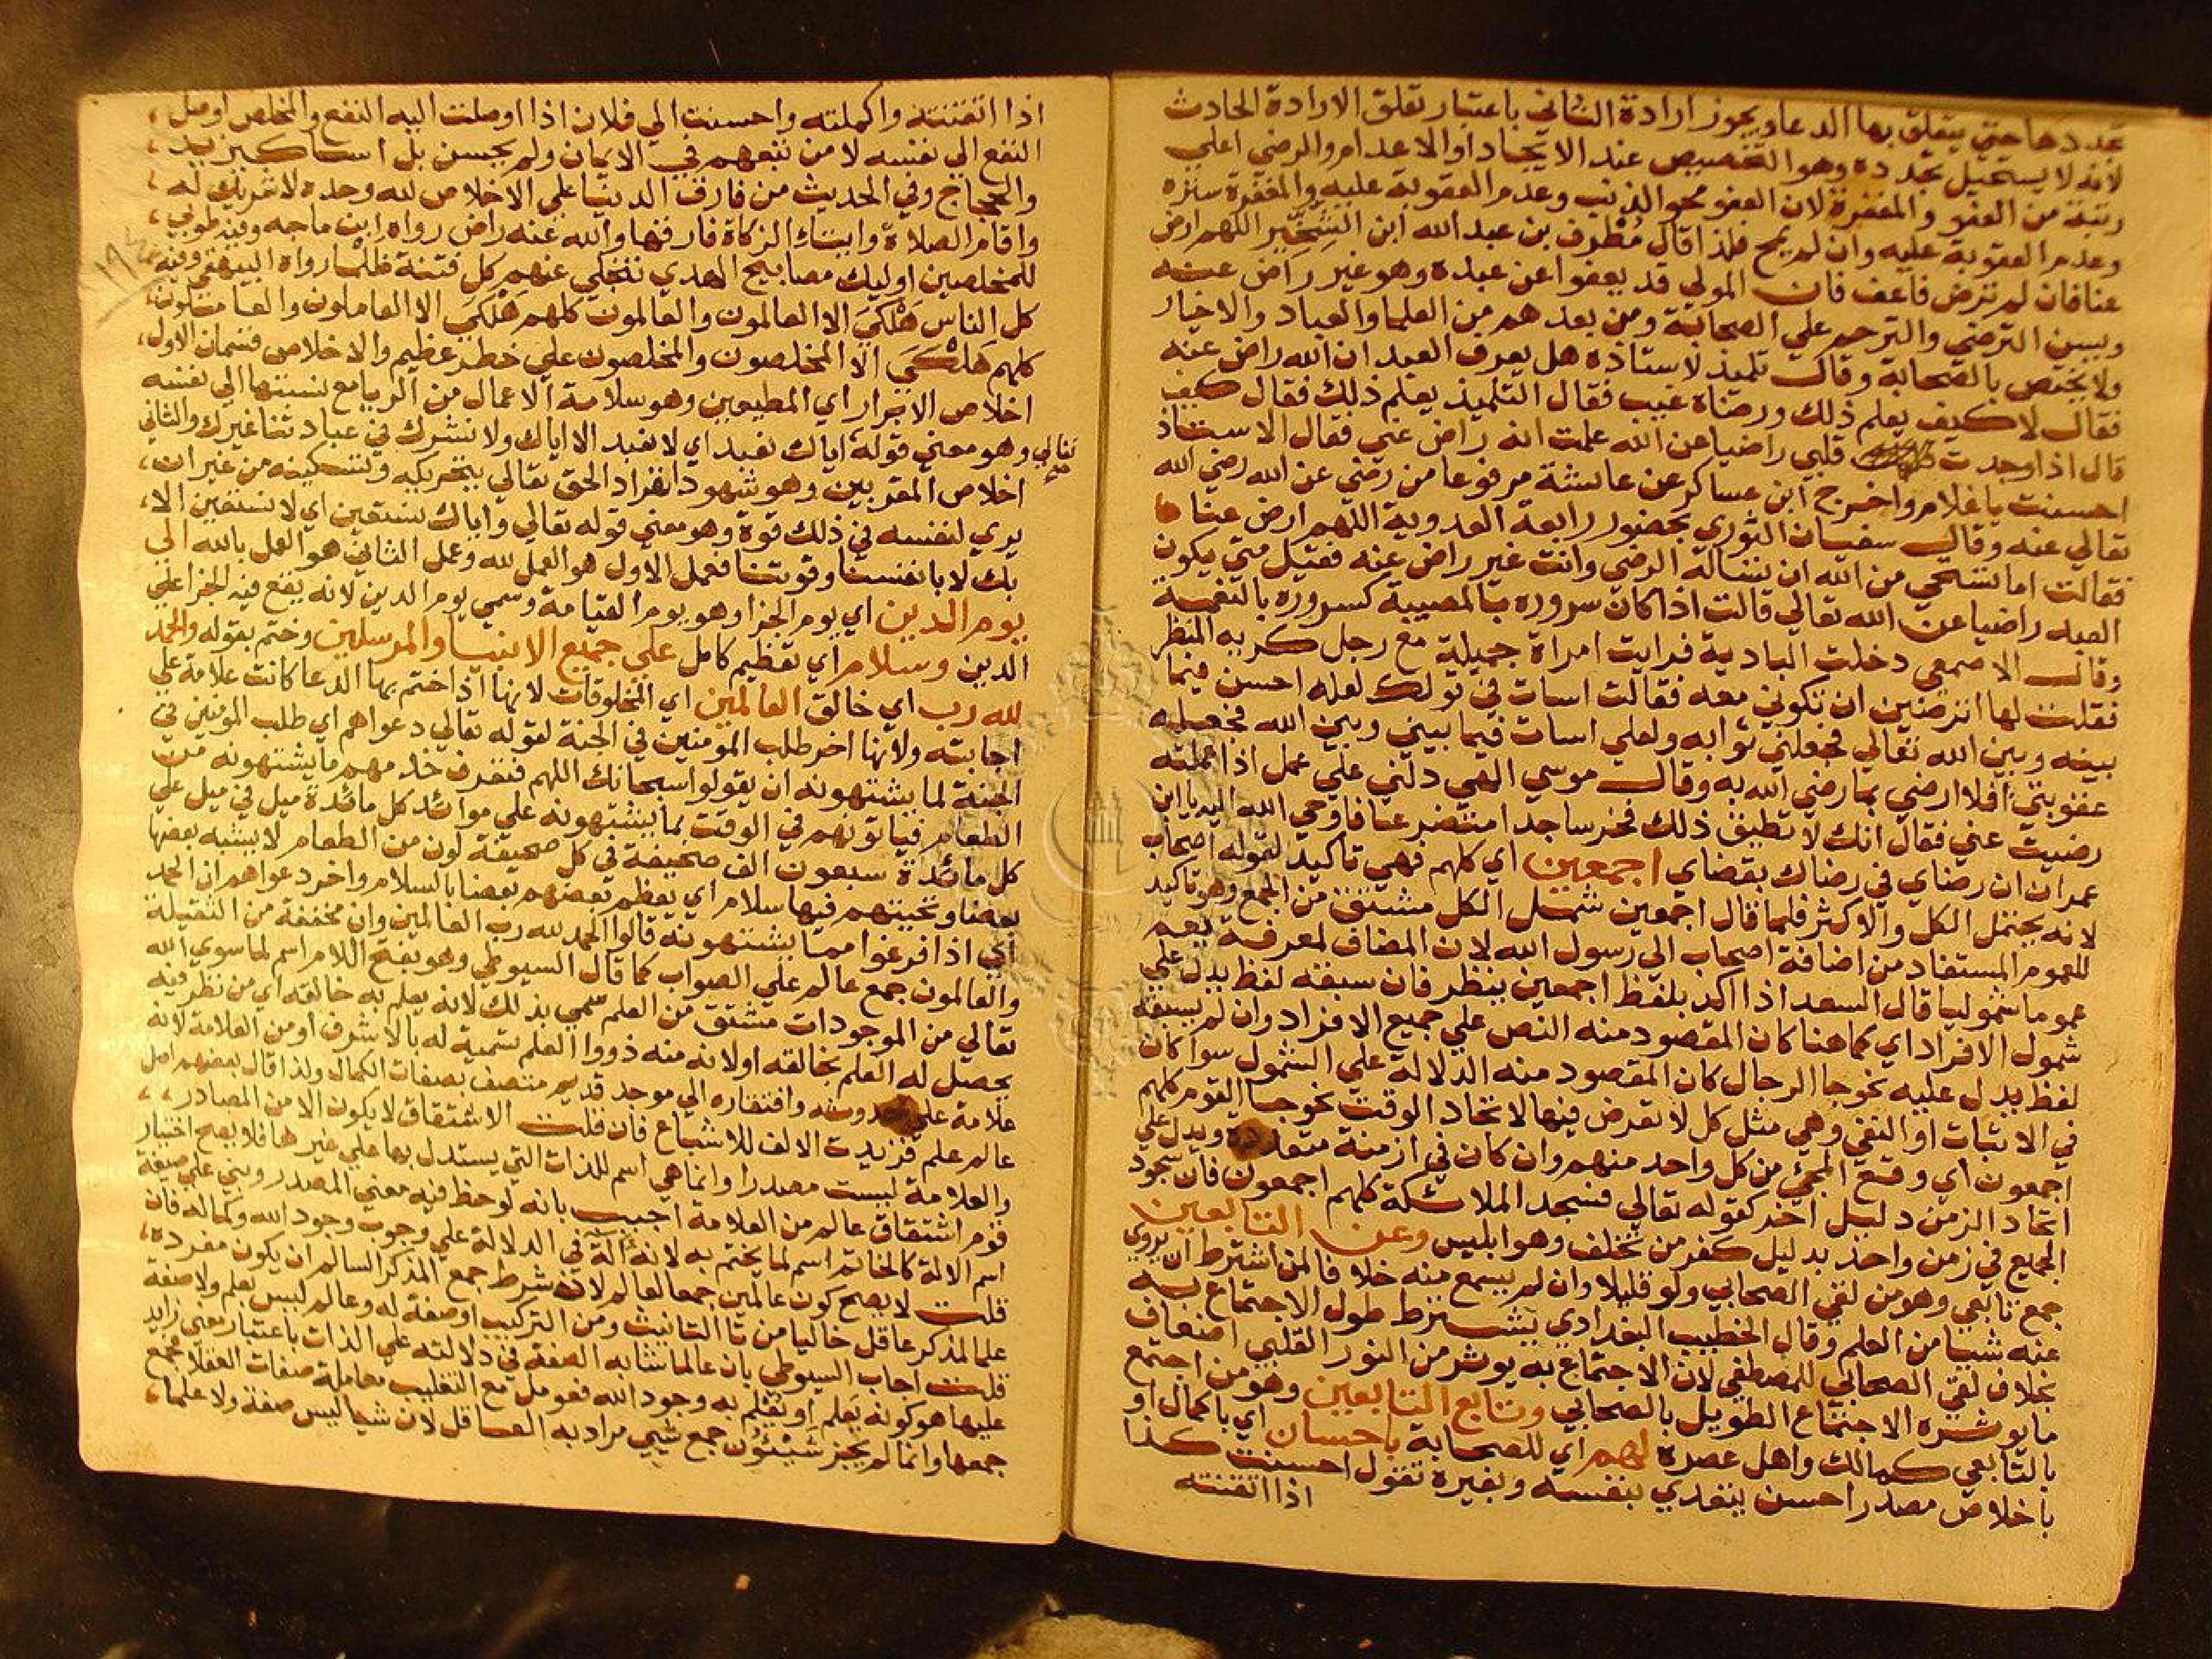 عددها حتي يتعلق بها الدعا ويجوز ارادة الثاني باعتبار تعلق الارادة الحادث
لانه لا يستحيل تجدده وهو التخصيص عند الايجاد او الاعدام والرضي اعلي
رتبة من العفو والمغفرة لان العفو محو الذنب وعدم العقوبة عليه والمغفرة ستره
وعدم العقوبة عليه وان لم يمح فلذا قال مُطَرِف بن عبد الله ابن الشِّخِّير اللهم ارض
عنا فان لم ترض فاعف فان المولي قد يعفوا عن عبده وهو غير راض عنه
ويسن الترضي والترحم علي الصحابة ومن بعدهم من العلما والعباد والاخيار
ولا يختص بالصحابة وقال تلميذ لاستاذه هل يعرف العبد ان الله راض عنه
فقال لا كيف يعلم ذلك ورضاه غيب فقال التلميذ يعلم ذلك فقال كيف
قال اذا وجدت قلبي راضيا عن الله علمت انه راض عني فقال الاستاذ
احسنت يا غلام واخرج ابن عساكر عن عائشة مرفوعا من رضي عن الله رضي الله
تعالي عنه وقال سفيان الثوري بحضور رابعة العدوية اللهم ارض عنا
فقالت اما تستحي من الله ان تساله الرضي وانت غير راض عنه فقيل متي يكون
العبد راضيا عن الله تعالي قالت اذا كان سروره بالمصيبة كسروره بالنعمة
وقال الاصمعي دخلت البادية فرايت امراة جميلة مع رجل كريه المنظر
فقلت لها اترضين ان تكوني معه فقالت اسات في قولك لعله احسن فيما
بينه وبين الله تعالي فجعلني ثوابه ولعلي اسات فيما بيني وبين الله فجعله
عقوبتي افلا ارضي بما رضي الله به وقال موسي الهي دلني علي عمل اذا عملته
رضيت عني فقال انك لا تطيق ذلك فخر ساجدا متضرعا فاوحي الله اليه يا ابن
عمران ان رضاي في رضاك بقضاي اجمعين اي كلهم فهي تاكيد لقوله اصحاب
لانه يحتمل الكل والاكثر فلما قال اجمعين شمل الكل مشتق من الجمع وهو تاكيد
للعموم المستفاد من اضافة اصحاب الي رسول الله لان المضاف لمعرفة يعم
عموما شموليا قال السعد اذا اكد بلفظ اجمعين ينظر فان سبقه لفظ يدل علي
شمول الافراد اي كما هنا كان المقصود منه النص علي جميع الافراد وان لم يسبقه
لفظ يدل عليه نحو جا الرجال كان المقصود منه الدلالة علي الشمول سوا كان
في الاثبات او النفي وهي مثل كل لا تعرض فيها لاتحاد الوقت نحو جا القوم كلهم
اجمعون اي وقع المجئ من كل واحد منهم وان كان في ازمنة متعددة ويدل علي
اتحاد الزمن دليل اخر كقوله تعالي فسجد الملائكة كلهم اجمعون فان سجود
الجميع في زمن واحد بدليل كفر من تخلف وهو ابليس وعن التابعين
جمع تابعي وهو من لقي الصحابي ولو قليلا وان لم يسمع منه خلافا لمن اشترط ان يروي
عنه شيا من العلم وقال الخطيب البغدادي يشترط طول الاجتماع به
بخلاف لقي الصحابي للمصطفي لان الاجتماع به يوثر من النور القلبي اضعاف
ما يوثره الاجتماع الطويل بالصحابي وتابع التابعين وهو من اجتمع
بالتابعي كمالك واهل عصره لهم اي للصحابة باحسان اي باكمال او
باخلاص مصدر احسن يتعدي بنفسه وبغيره تقول احسنت كذا
اذا اتقنته
اذا اتقنته واكملته واحسنت الي فلان اذا اوصلت اليه النفع والمخلص اوصل
النفع الي نفسه لا من تبعهم في الايمان ولم يحسن بل اسا كيزيد
والحجاج وفي الحديث من فارق الدنيا علي الاخلاص لله وحده لا شريك له
واقام الصلاة وايتاء الزكاة فارقها والله عنه راض رواه ابن ماجه وفيه طوبي
للمخلصين اوليك مصابيح الهدي تنجلي عنهم كل فتنة ظلما رواه البيهقي وفيه
كل الناس هَلْكَي الا العالمون والعالمون كلهم هَلْكَي الا العاملون والعاملون
كلهم هَلْكَي الا المخلصون والمخلصون علي خطر عظيم والاخلاص قسمان الاول
اخلاص الابرار اي المطيعين وهو سلامة الاعمال من الريا مع نسبتها الي نفسه
وهو معني قوله اياك نعبد اي لا نعبد الا اياك ولا نشرك في عبادتنا غيرك والثاني
اخلاص المقربين وهو شهود انفراد الحق تعالي بتحريكه وتسكينه من غير ان
يري لنفسه في ذلك قوة وهو معني قوله تعالي واياك نستعين اي لا نستعين الا
بك لا بانفسنا وقوتنا فعمل الاول هو العمل لله وعمل الثاني هو العمل بالله الي
يوم الدين اي يوم الجزا وهو يوم القيامة وسمي يوم الدين لانه يقع فيه الجزا علي
الدين وسلام اي تعظيم كامل علي جميع الانبيا والمرسلين وختم بقوله والحمد
لله رب اي خالق العالمين اي المخلوقات لانها اذا ختم بها الدعا كانت علامة علي
اجابته ولانها اخر طلب المؤمنين في الجنة لقوله تعالي دعواهم اي طلب المؤمنين في
الجنة لما يشتهونه ان يقولوا سبحانك اللهم فتعرف خدمهم ما يشتهونه من
الطعام فياتونهم في الوقت بما يشتهونه علي موائد كل مائدة ميل في ميل علي
كل مائدة سبعون الف صحيفة في كل صحيفة لون من الطعام لا يشبه بعضها
بعضا وتحيتهم فيها سلام اي يعظم بعضهم بعضا بالسلام واخر دعواهم ان الحمد
اي اذا فرغوا مما يشتهونه قالوا الحمد لله رب العالمين وان مخففة من الثقيلة
والعالمون جمع عالم علي الصواب كما قال السيوطي وهو بفتح اللام اسم لما سوي الله
تعالي من الموجودات مشتق من العلم سمي بذلك لانه يعلم به خالقه اي من نظر فيه
يحصل له العلم بخالقه اولانه منه ذووا العلم تسمية له بالاشرف او من العلامة لانه
علامة علي حدوثه وافتقاره الي موجد قديم متصف بصفات الكمال ولذا قال بعضهم اصل
عالم علم فزيدت الالف للاشباع فان قلت الاشتقاق لا يكون الا من المصادر
والعلامة ليست مصدرا وانما هي اسم للذات التي يستدل بها علي غيرها فلا يصح اختيار
قوم اشتقاق عالم من العلامة اجيب بانه لوحظ فيه معني المصدر وبني علي صيغة
اسم الالة كالخاتم اسم لما يختم به لانه آلة في الدلالة علي وجوب وجود الله وكماله فان
قلت لا يصح كون عالمين جمعا لعالم لان شرط جمع المذكر السالم ان يكون مفرده
علما لمذكر عاقل خاليا من تا التانيث ومن التركيب او صفة له وعالم ليس بعلم ولا صفة
قلت اجاب السيوطي بان عالما شابه الصفة في دلالته علي الذات باعتبار معني زايد
عليها هو كونه يَعلم او يُعْلم به وجود الله فعومل مع التغليب معاملة صفات العقلا فجمع
جمعها وانما لم يجز شَيْئُون جمع شيي مراد به العاقل لان شيا ليس صفة ولا علما